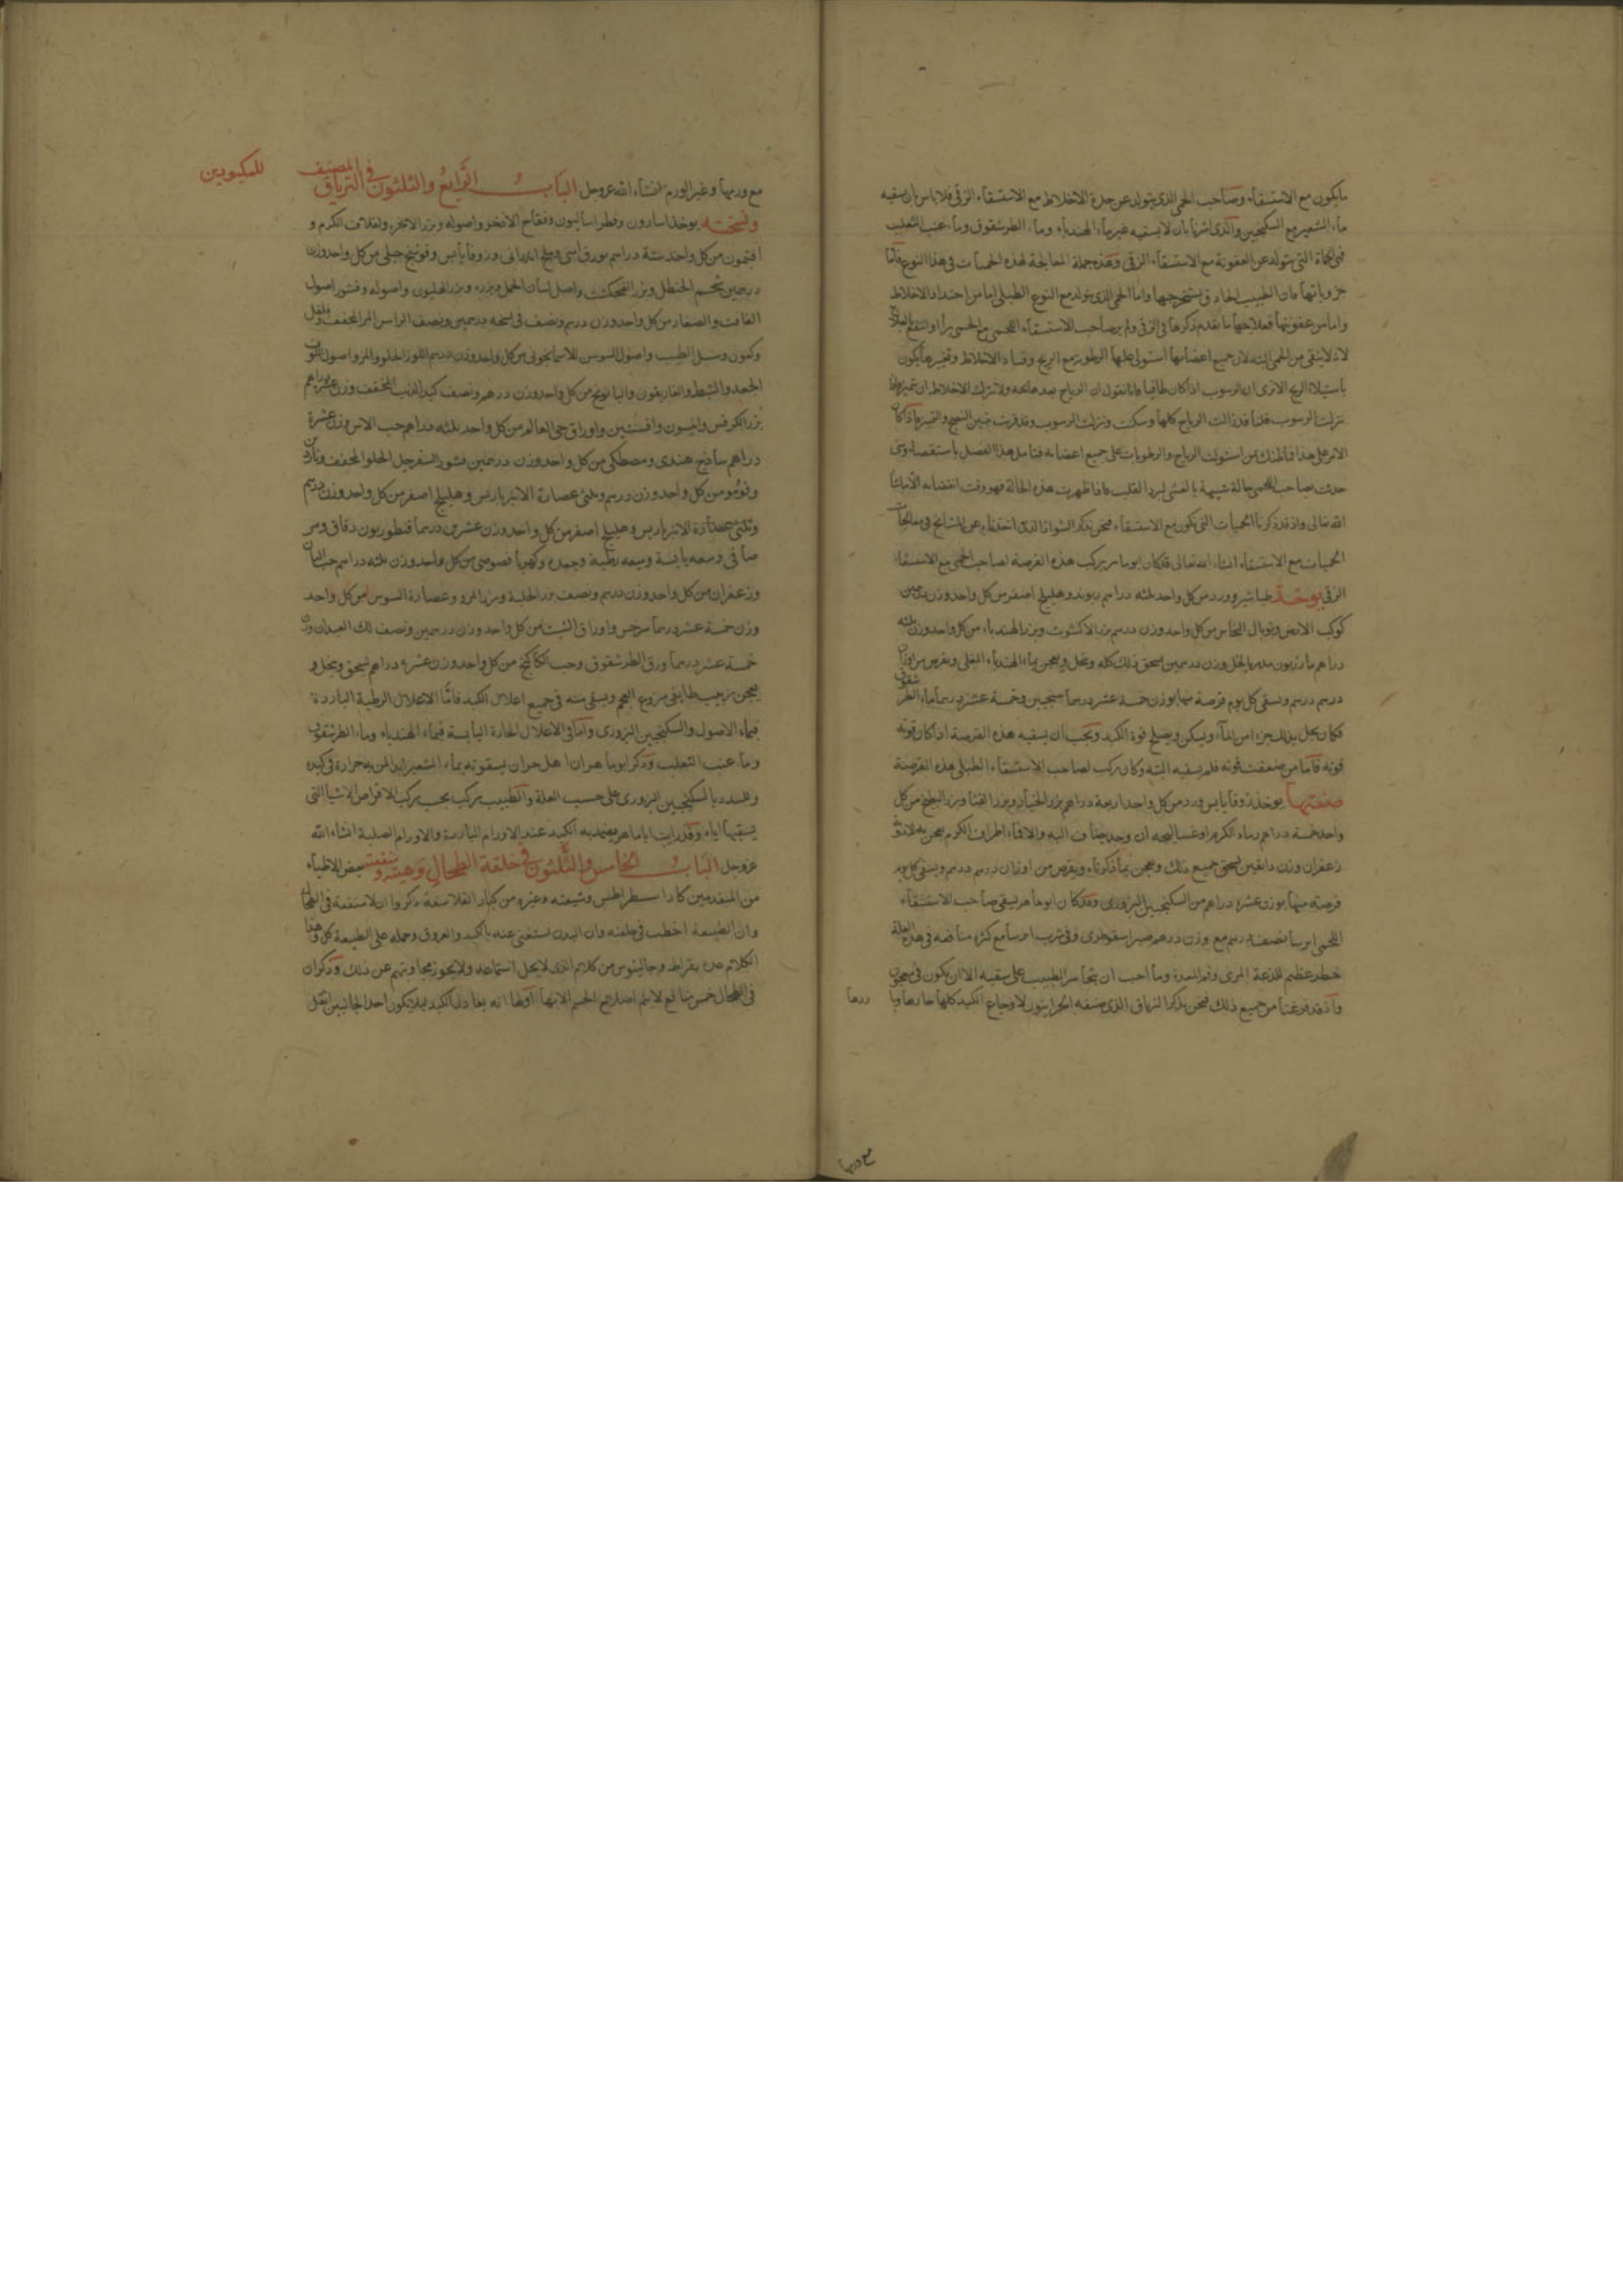 ما يكون مع الاستسقاء وصاحب الحمى الذى يتولد عن حدة الاخلاط مع الاستسقاء الزقى فلا باس بان يسقيه
ماء الشعير مع السكنجبين والذى اشرنا بان لا يسقيه غير ماء الهندباء وماء الطرشقوق وماء عنب الثعلب
فى الحماة التى يتولد عن العفونة مع الاستسقاء الزقى وهذه جملة المعالجة لهذه الحميات فى هذا النوع فاما
جزوياتها فان الطبيب الحاذق يستخرجها واما الحمى الذى يتولد مع النوع الطبلى اما من احتداد الاخلاط
واما من عفونتها فعلاجها ما تقدم ذكرها فى الزقى ولم ير صاحب الاستسقاء اللحمى مع الحمى برأ او انتفع بالعلاج
لانه لا ينقى من الحمى البته لان جميع اعضائها استولى عليها الرطوبة مع الريح وفساد الاخلاط وتغييرها يكون
باستيلاء الريح الا ترى ان الرسوب اذا كان طافيا فانا نقول ان الرياح بعد هائجه ولا تترك الاخلاط ان تتميز فاذا
نزلت الرسوب قلنا قد زالت الرياح كلها وسكنت ونزلت الرسوب وقد قربت حين النضج والتميز فاذا كان
الامر على هذا فما ظنك بمن استولت الرياح والرطوبات على جميع اعضائه فتامل هذا الفصل باستقصاء ومتى
حدث بصاحب اللحمى حالة شبيهة بالغشى لبرد القلب فاذا ظهرت هذه الحالة فهو وقت انقضائه الا ما شاء
الله تعالى واذ قد ذكرنا الحميات التى تكون مع الاستسقاء فنحن نذكر الشواذ الذى احفظه عن المشايخ فى معالجات
الحميات مع الاستسقاء انشاء الله تعالى فكان ابو ماهر يركب هذه القرصة لصاحب الحمى مع الاستسقاء
الزقى يوخذ طباشير وورد من كل واحد ثلثه دراهم ريوند وهليلج اصفر من كل واحد وزن درهمين
كوكب الارض وتوبال النحاس من كل واحد وزن درهم بزر الاكشوث وبزر الهندباء من كل واحد وزن ثلثه
دراهم مازريون مدبر بالخل وزن درهمين يسحق ذلك كله وينخل ويعجن بماء الهندباء المغلى ويقرص من اوزان
درهم درهم ويسقى كل يوم قرصة منها بوزن خمسة عشر درهما سكنجبين وخمسة عشر درهما ماء الطرشقوق
فكان يحل بذلك جزء من الماء ويسكن ويصلح قوة الكبد ويجب ان يسقيه هذه القرصة اذا كان قوته
قوته فاما من ضعفت قوته فلم يسقيه البته وكان يركب لصاحب الاستسقاء الطبلى هذه القرصة
صنعتها يوخذ زوفا يابس وورد من كل واحد اربعة دراهم بزر الخيار وبزر القثا وبزر البطيخ من كل
واحد خمسة دراهم
زعفران وزن دانقين يسحق جميع ذلك ويعجن بما ذكرناه ويقرص من اوزان درهم درهم ويسقى كل يوم
قرصة منها بوزن عشرة دراهم من السكنجبين البزورى وقد كان ابو ماهر يسقى صاحب الاستسقاء
اللحمى ايرسا نصف درهم مع وزن درهم صبر اسقوطرى وفى شرب ايرسا مع كثرة منافعه فى هذه العلة
خطر عظيم للذعة المرى وفم المعدة وما احب ان يتجاسر الطبيب على سقيه الا ان يكون فى معجون
واذ قد فرغنا من جميع ذلك فنحن نذكر الترياق الذى صنفه الحرانيون لاوجاع الكبد كلها حارها وباردها
مع ورمها
مع ورمها وغير الورم انشاء الله عز وجل الباب الرابع والثلثون فى الترياق المصنف للمكبودين
ونسخته يوخذ اسارون وفطراساليون وفقاح الاذخر واصوله وبزر الانجره ولفلافت الكرم و
افتيمون من كل واحد ستة دراهم بورق ارمنى وملح اندرانى وزوفا يابس وفوتنج جبلى من كل واحد وزن
درهمين شحم الحنظل وبزر الفنجنكشت واصل لسان الحمل وبزره وبزر الهليون واصوله وقشور اصول
الغافت والصغار من كل واحد وزن درهم ونصف فى نسخه درهمين ونصف الراسن المر المجفف وفلفل
وكمون وسنبل الطيب واصول السوسن الاسمانجونى من كل واحد وزن درهم اللوز الحلو والمر واصول
الجعد والشبط والغاريقون والبابونج من كل واحد وزن درهم ونصف كبد الذئب المجفف وزن عشرة دراهم
بزر الكرفس وانيسون وافسنتين واوراق حى العالم من كل واحد ثلثه دراهم حب الاس وزن عشرة
دراهم ساذج هندى ومصطكى من كل واحد وزن درهمين قشور السفرجل الحلو المجفف وناردين
وفو ومو من كل واحد وزن درهم وثلثى عصارة الانبرباريس وهليلج اصفر من كل واحد وزن درهم
وثلثى عصارة الانبرباريس وهليلج اصفر من كل واحد وزن عشرين درهما قنطوريون دقاق ومر
صافى وميعه يابسة وميعه رطبة وجعده وكهربا من كل واحد وزن ثلثه دراهم حب البان
وزعفران من كل واحد وزن درهم ونصف بزر الحلبة وبزر المرو وعصارة السوس من كل واحد
وزن خمسة عشر درهما سرخس واوراق الشبت من كل واحد وزن درهمين ونصف لك العيدان وزن
خمسة عشر درهما ورق الطرشقوق وحب الكاكنج من كل واحد وزن عشرة دراهم يسحق وينخل و
يعجن بزبيب طايفى منزوع العجم ويسقى منه فى جميع اعلال الكبد فامّا الاعلال الرطبة الباردة
فبماء الاصول والسكنجبين البزورى واما فى الاعلال الحارة اليابسة فبماء الهندباء وماء الطرشقوق
وماء عنب الثعلب وذكر ابو ماهر ان اهل حران يسقونه بماء الشعير لمن به حرارة فى كبده
وللسدد بالسكنجبين البزورى على حسب العلة والطبيب يركب بحسب تركيب الاقراص الاشيا التى
يسقيها اياه وقد رايت ابا ماهر يضمد به الكبد عند الاورام الباردة والاورام الصلبة انشاء الله
عز وجل الباب الخامس والثلثون فى خلقة الطحال وهيئته ومنفعته بعض الاطباء
من المتقدمين كاراسسطراطس وشيعته وغيره من كبار الفلاسفة ذكروا ان لا منفعة فى الطحال
وان الطبيعة اخطت فى خلقته وان البدن يستغنى عنه بالكبد والعروق وحمله على الطبيعة كل وهذا
الكلام عند بقراط وجالينوس من كلام الذى لا يحل استماعه ولا يجوز مجاوبتهم عن ذلك وذكر ان
فى الطحال خمس منافع لا يتم اصلاح الجسم الا بها اولها انه يعادل الكبد ليلا يكون احد الجانبين اثقل